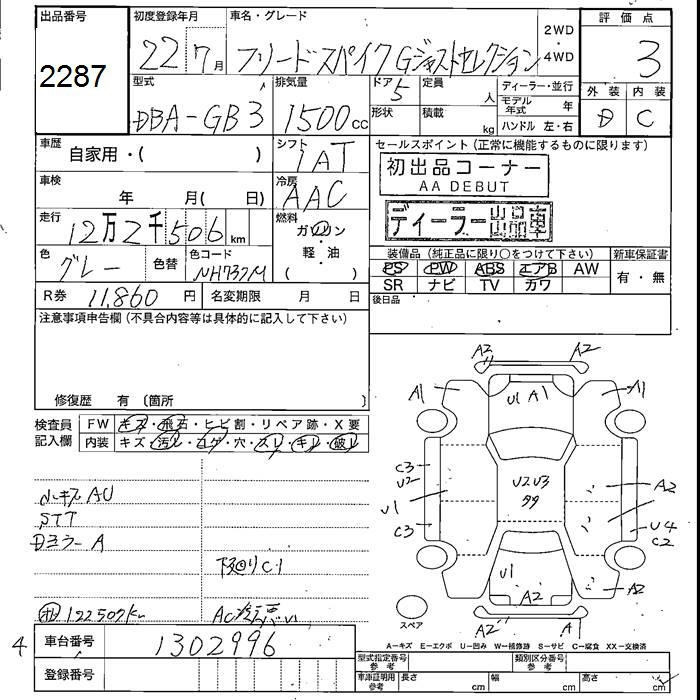 出品番号
2287
初度登録年月
22 7月
車名・グレード
フリードスパイク Gジャストセレクション
2WD
・
4WD
評価点
3
外装 内装
D C
型式
DBA-GB3
排気量
1500cc
ドア
5
形状
定員
人
積載
kg
ディーラー・並行
モデル年式 年
ハンドル 左・右
車歴
自家用・( )
シフト
IAT
車検
年 月( 日)
冷房
AAC
走行
12万2千506km
燃料
ガソリン
軽・油
( )
色
グレー
色替
色コード
NH737M
R券 11,860円
名変期限 月 日
セールスポイント(正常に機能するものに限ります)
初出品コーナー
AA DEBUT
ディーラー出品車
装備品(純正品に限り○をつけて下さい)
PS PW ABS エアB AW
SR ナビ TV カワ
新車保証書
有・無
後日品
注意事項申告欄(不具合内容等は具体的に記入して下さい)
修復歴 有〔箇所 〕
検査員
記入欄
FW キズ・飛石・ヒビ割・リペア跡・X要
内装 キズ・汚レ・コゲ・穴・スレ・キレ・破レ
小キズ AU
STT
Dミラー A
下廻りC1
122507km
4
車台番号
1302996
登録番号
A2 A2
A1 U1 A1 A1
C3
U2
U1
C3
U2U3
A2
U4
C2
U1
A2
A2
A2 A1
スペア
A−キズ E−エクボ U−凹み W−補修跡 S−サビ C−腐食 XX−交換済
型式指定番号
参考
類別区分番号
参考
車庫証明用
参考
長さ cm
幅 cm
高さ cm